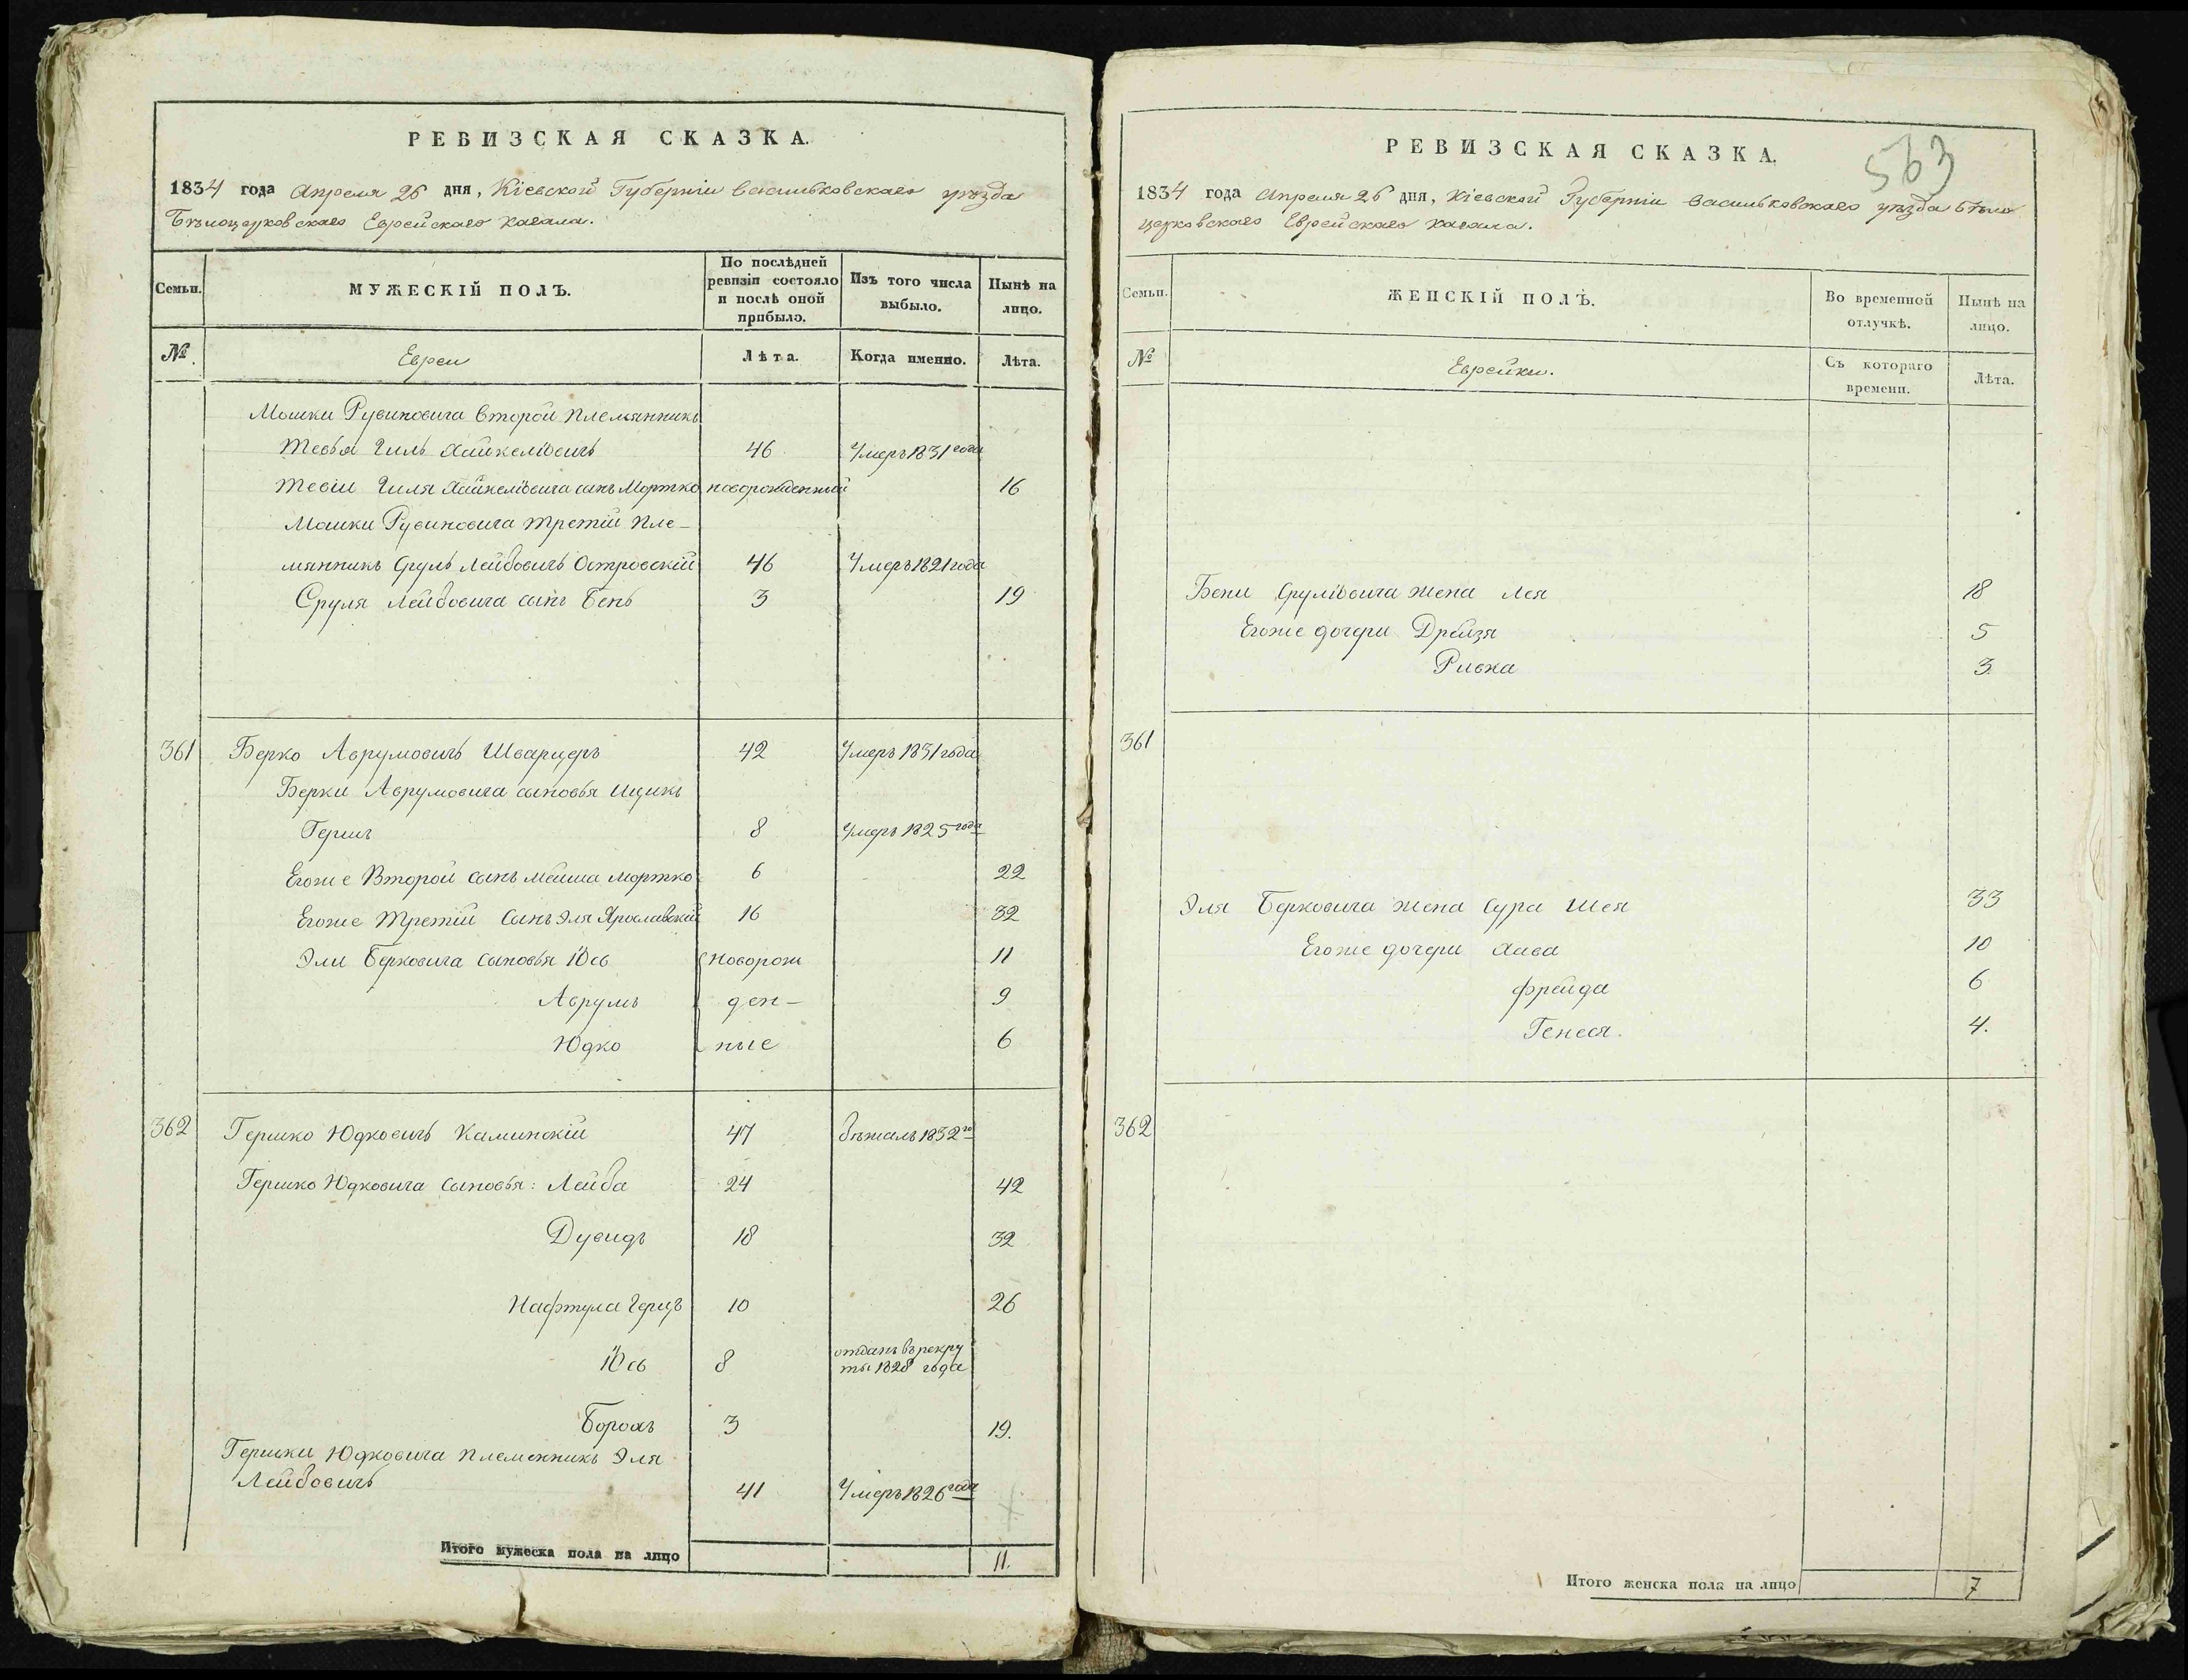 РЕВИЗСКАЯ СКАЗКА.
1834 года Апреля 26 дня, Кіевской Губерніи Васильковскаго уѣзда
Бѣлоцерковскаго Еврейскаго кагала.
Семьи. МУЖЕСКІЙ ПОЛЪ. По послѣдней ревизіи состояло и послѣ оной прибыло. Изъ того числа выбыло. Нынѣ на лицо.
№ Евреи Лѣта. Когда именно. Лѣта.
Мошки Рувиновича второй племянникъ
Тевья Гиль Хайкелювичъ 46 Умеръ 1831 года
Тевіи Гиля Хайкелювича сынъ Мортко новорожденный 16
Мошки Рувиновича третій пле-
мянникъ Сруль Лейбовичъ Островскій 46 Умеръ 1821 года
Сруля Лейбовича сынъ Бень 3 19
361 Берко Аврумовичъ Шварцеръ 42 Умеръ 1831 года
Берки Аврумовича сыновья Ицикъ
Гершъ 8 Умеръ 1825 года
Егоже Второй сынъ Мейша Мортко 6 22
Егоже Третій Сынъ Эля Ярославскій 16 32
Эли Берковича сыновья Іось Новорож 11
Аврумъ ден- 9
Юдко ные 6
362 Гершко Юдковичъ Каминскій 47 бѣжалъ 1832 го
Гершко Юдковича сыновья: Лейба 24 42
Дувидъ 18 32
Нафтула Герцъ 10 26
Іось 8 отданъ въ рекру
ты 1828 года
Борохъ 3 19.
Гершки Юдковича племенникъ Эля
Лейбовичъ 41 Умеръ 1826 года
Итого мужеска пола на лицо 11.
563
РЕВИЗСКАЯ СКАЗКА.
1834 года Апреля 26 дня, Кіевской Губерніи Васильковскаго уѣзда Бѣло
церковскаго Еврейскаго кагала.
Семьи. ЖЕНСКІЙ ПОЛЪ. Во временной отлучкѣ. Нынѣ на лицо.
№ Еврейки. Съ котораго времени. Лѣта.
Бени Срулювича жена Лея 18
Егоже дочери Дрейзя 5
Ривка 3.
361
Эля Берковича жена Сура Шея 33
Егоже дочери Хава 10
Фрейда 6
Генеся. 4.
362
Итого женска пола на лицо 7